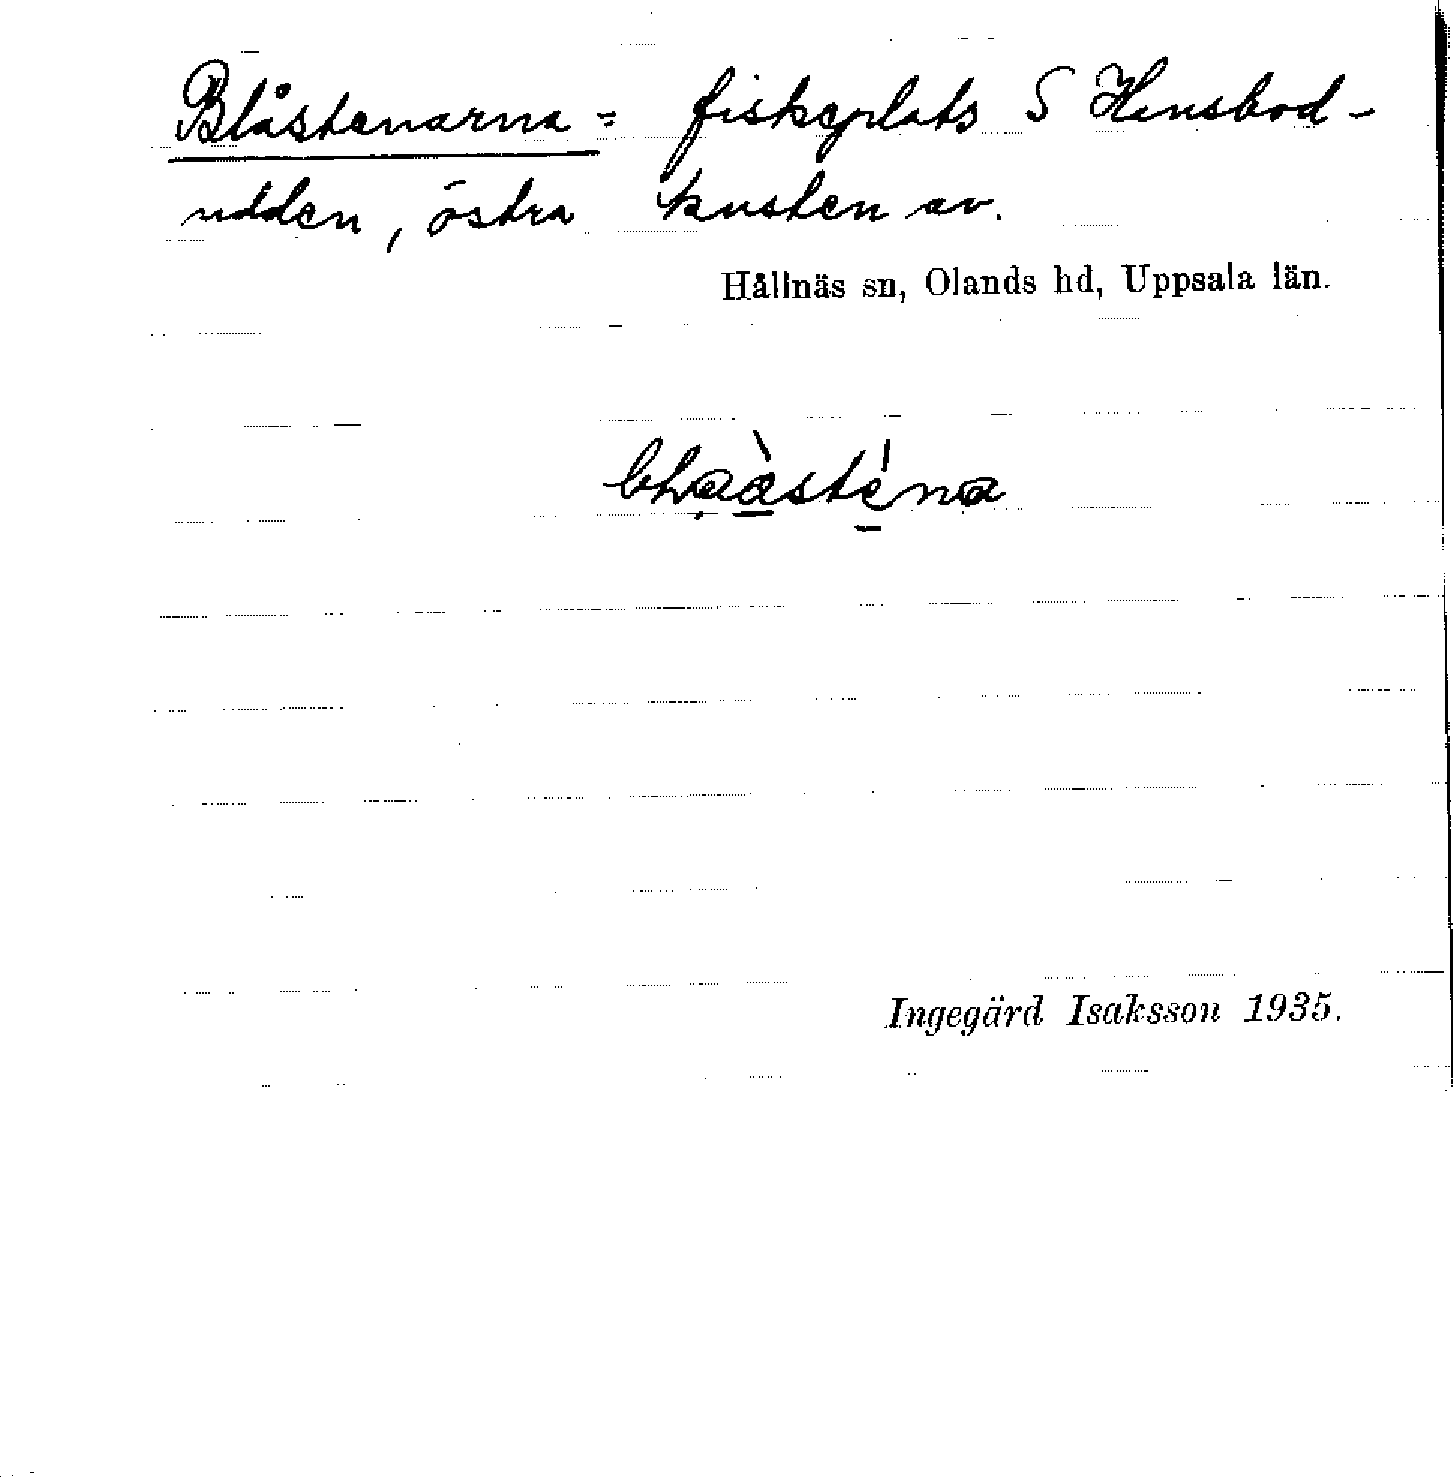 Blåstenarna = fiskeplats S Hensbod-
udden, östra kusten av.
Hållnäs sn, Olands hd, Uppsala län.
Ingegärd Isaksson 1935.